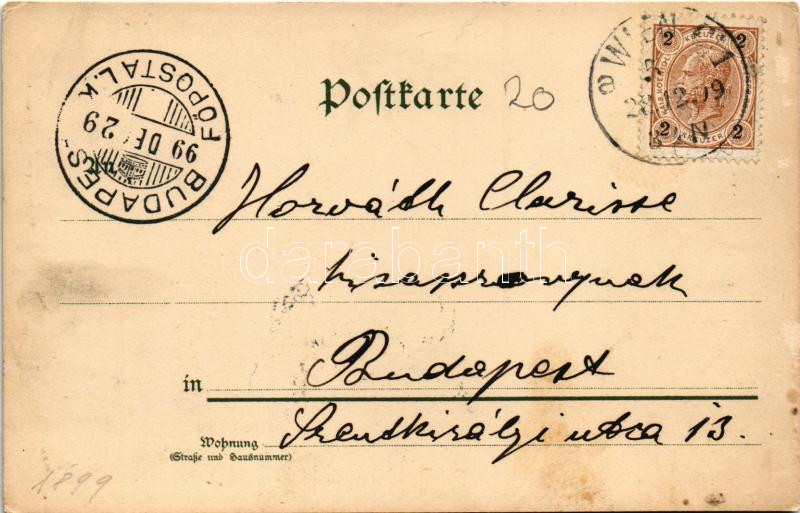 BUDAPEST FŐPOSTAI.K
99 DEC 29
Postkarte
20
WIEN 1
28 12 99
2 KREUZER 2
2 KREUZER 2
An
Horváth Clarisse
kisasszonynak
darabanth
in Budapest
Wohnung
(Straße und Hausnummer)
Szentkirályi utca 13.
1899